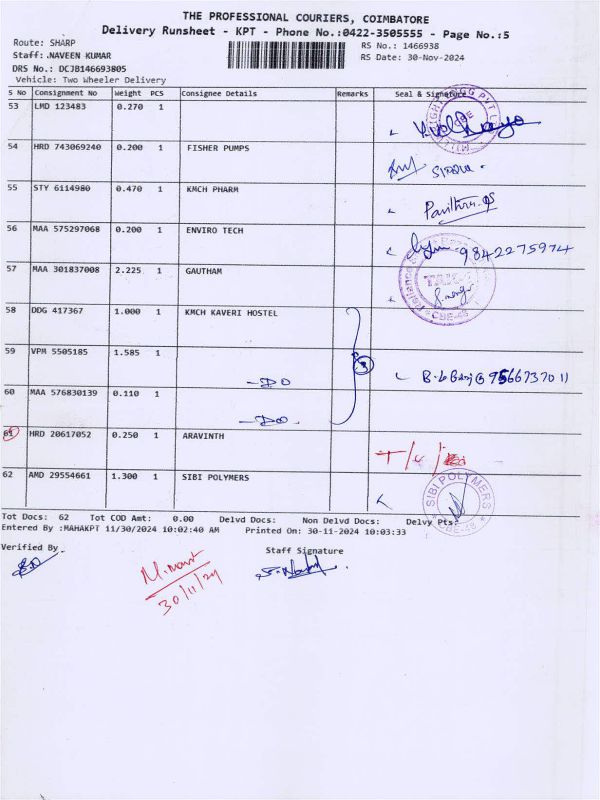 THE PROFESSIONAL COURIERS, COIMBATORE
Delivery Runsheet - KPT - Phone No.:0422-3505555 - Page No.:5
Route: SHARP RS No.: 1466938
Staff:.NAVEEN KUMAR RS Date: 30-Nov-2024
DRS No.: DCJB146693805
Vehicle: Two Wheeler Delivery
S No Consignment No Weight PCS Consignee Details Remarks Seal & Signature
53 LMD 123483 0.270 1
54 HRD 743069240 0.200 1 FISHER PUMPS
55 STY 6114980 0.470 1 KMCH PHARM
56 MAA 575297068 0.200 1 ENVIRO TECH 9842275974
57 MAA 301837008 2.225 1 GAUTHAM
CBE-48
58 DDG 417367 1.000 1 KMCH KAVERI HOSTEL
59 VPM 5505185 1.585 1
-DO
60 MAA 576830139 0.110 1
-DO
61 HRD 20617052 0.250 1 ARAVINTH
62 AMD 29554661 1.300 1 SIBI POLYMERS
SIBI POLYMERS
CBE-48
Tot Docs: 62 Tot COD Amt: 0.00 Delvd Docs: Non Delvd Docs: Delvy Pts:
Entered By :MAHAKPT 11/30/2024 10:02:40 AM Printed On: 30-11-2024 10:03:33
Verified By Staff Signature
30/11/24